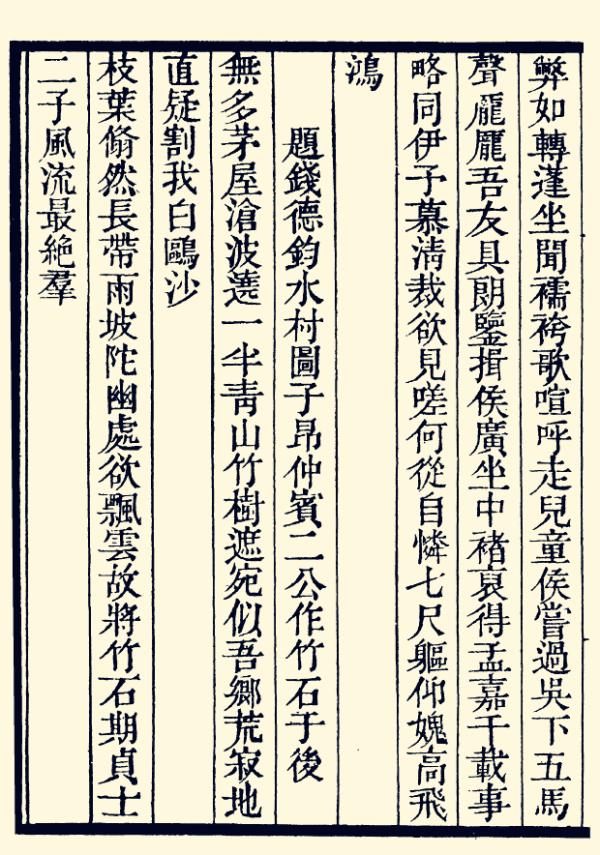 弊如轉蓬坐聞襦袴歌喧呼走兒童侯嘗過吳下五馬
聲龎龎吾友具朗鑒揖侯廣坐中褚裒得孟嘉千載事
略同伊予慕淸裁欲見嗟何從自憐七尺軀仰媿高飛
鴻
題錢德鈞水村圖子昂仲賓二公作竹石于後
無多茅屋滄波遶一半靑山竹樹遮宛似吾鄉荒寂地
直疑割我白鷗沙
枝葉翛然長帶雨坡陀幽處欲飄雲故將竹石期貞士
二子風流最絕羣